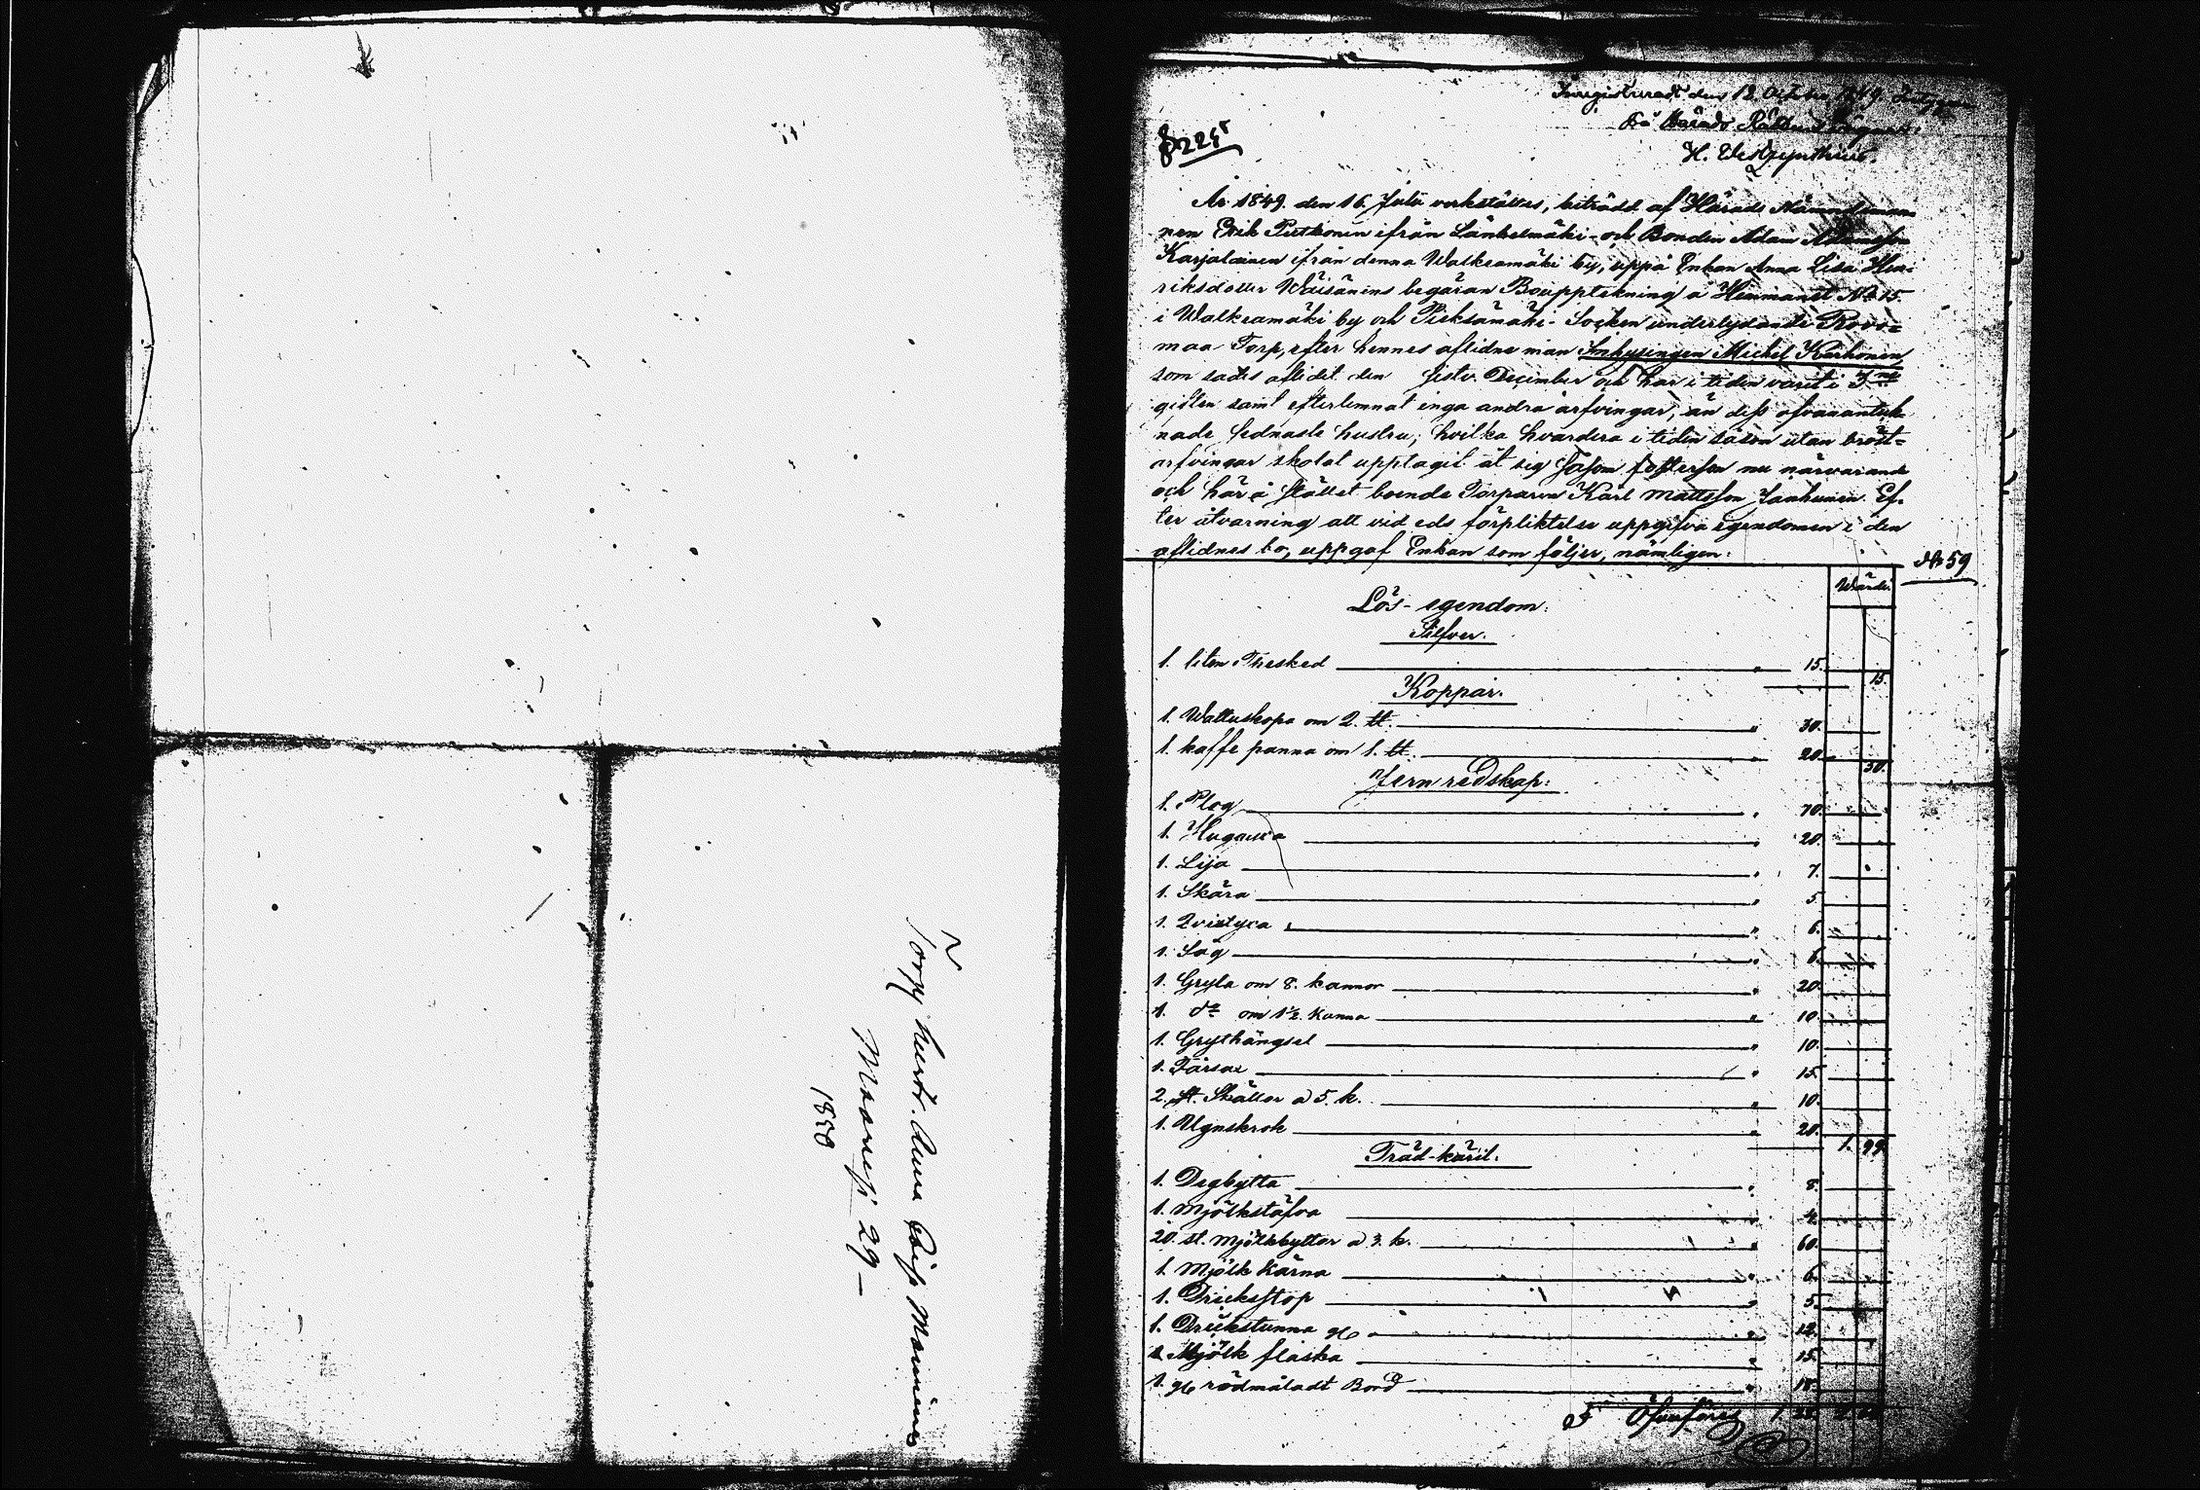 Torp. hustr. Anna Lisa Manninens
Maaninen 29 –
1850
Inregistreradt den 12 October 1849. Intygar
På Härads Rättens vägnar:
H. Westzynthius.
§ 225
År 1849. den 16. Julii verkställtes, biträdd af Härads Nämndeman-
nen Erik Puttonen ifrån Länkelmäki- och Bonden Adam Adamsson
Karjalainen ifrån denna Walkeamäki by, uppå Enkan Anna Lisa Hen-
riksdotter Wäisänens begäran Bouppteckning å Hemmanet No 15.
i Walkeamäki by och Pieksämäki- Socken underlydande Rovo=
maa Torp, efter hennes aflidne man Inhysingen Michel Karhonen,
som sades aflidit den sistv. December och har i tiden varit i
giften samt efterlemnat inga andra arfvingar, än dess ofvanantek-
nade sednaste hustru; hvilka hvardera i tiden såsom utan bröst=
arfvingar skolat upptagit åt sig såsom fosterson nu närvarande
och här å stället boende Torparen Karl Mattsson Janhunen. Ef-
ter utvarning att vid eds förpliktelse uppgifva egendomen i den
aflidnes bo, uppgaf Enkan som följer, nämligen:
No 59
Wärde.
Lös- egendom:
Silfver.
1. liten Thesked " 15. 15.
Koppar.
1. Wattuskopa om 2. tt. " 30.
1. kaffe panna om 1. tt. " 20. 50.
Jern redskap:
1. Plog " 70.
1. Hugauxa " 20.
1. Lija " 7.
1. Skära " 5.
1. Qvistyxa " 6.
1. Såg " 6.
1. Gryta om 8. kannor " 20.
1. do om 1½ kanna " 10.
1. Grythängsel " 10.
1. Fårsax " 15.
2. st. Skällor a 5. k. " 10.
1. Ugnskrok " 20. 1. 99.
Träd-käril.
1. Degbytta " 8.
1. Mjölkstäfva " 4.
20. st. Mjölkbyttor a 3. k. " 60.
1. Mjölk kärna " 6.
1. Dricksstop " 5.
1. Drickstunna " 12.
1. Mjölk flaska " 15.
1. rödmåladt Bord " 15.
Öfverföres 1. 25.